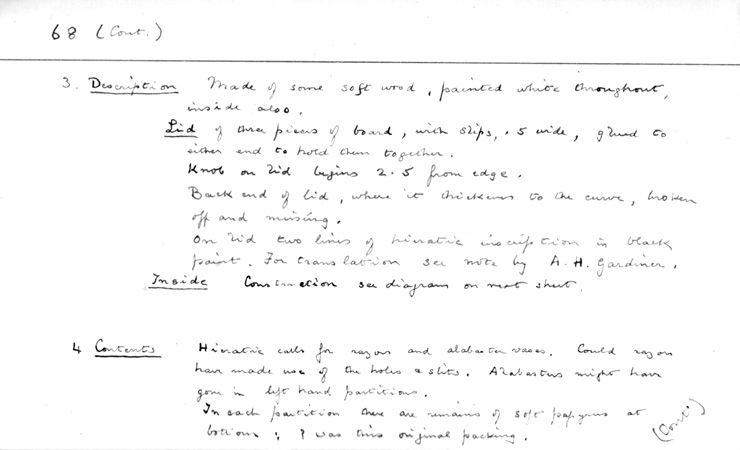 68 (Cont.)
3. Description Made of some soft wood, painted white throughout,
inside also.
Lid of three pieces of board, with slips, .5 wide, glued to
either end to hold them together.
Knob on lid begins 2.5 from edge.
Back end of lid, where it thickens to the curve, broken
off and missing.
On lid two lines of hieratic inscription in black
paint. For translation see note by A. H. Gardiner.
Inside Construction see diagram on next sheet.
4 Contents Hieratic calls for razors and alabaster vases. Could razors
have made use of the holes & slits. Alabasters might have
gone in left hand partitions.
In each partition there are remains of soft papyrus at
bottom : ? was this original packing.
(Cont.)